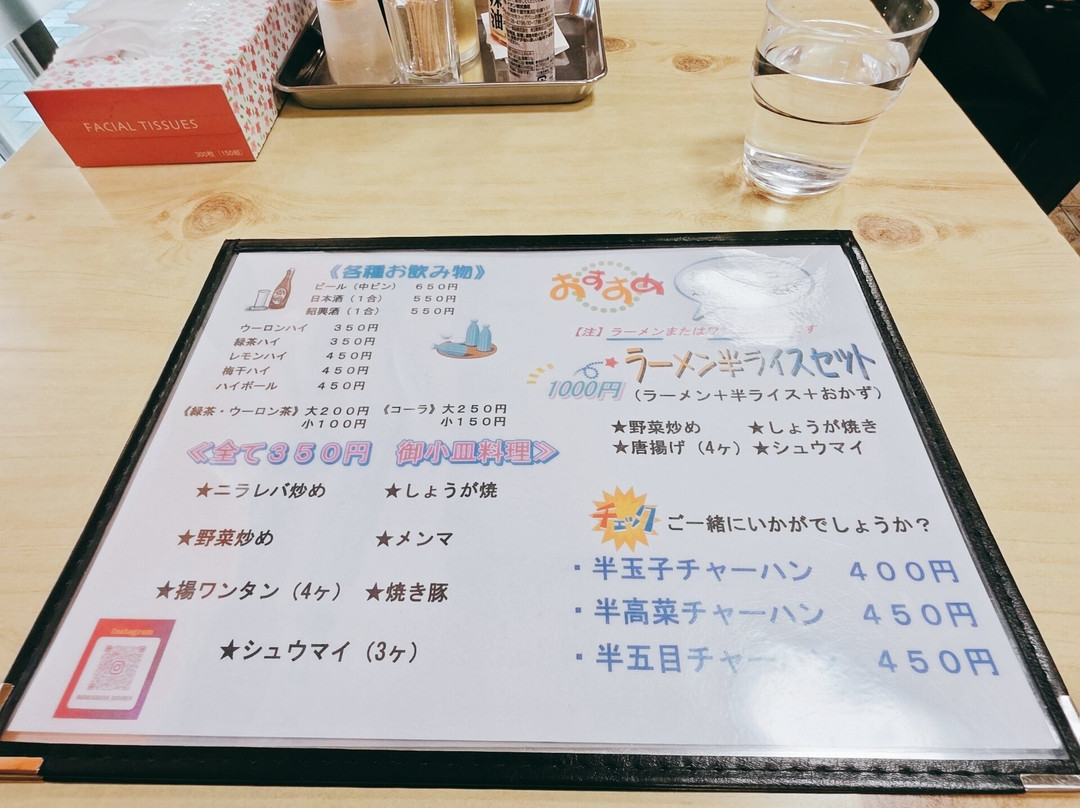 FACIAL TISSUES
300枚(150組)
辣油
《各種お飲み物》
ビール(中ビン) 650円
日本酒(1合) 550円
紹興酒(1合) 550円
ウーロンハイ 350円
緑茶ハイ 350円
レモンハイ 450円
梅干ハイ 450円
ハイボール 450円
《緑茶・ウーロン茶》大200円
小100円
《コーラ》大250円
小150円
≪全て350円 御小皿料理≫
★ニラレバ炒め ★しょうが焼
★野菜炒め ★メンマ
★揚ワンタン(4ヶ) ★焼き豚
★シュウマイ(3ヶ)
Instagram
おすすめ
【注】ラーメンまたは
ラーメン半ライスセット
1000円
(ラーメン+半ライス+おかず)
★野菜炒め ★しょうが焼き
★唐揚げ(4ヶ) ★シュウマイ
チェック ご一緒にいかがでしょうか?
・半玉子チャーハン 400円
・半高菜チャーハン 450円
・半五目チャー 450円